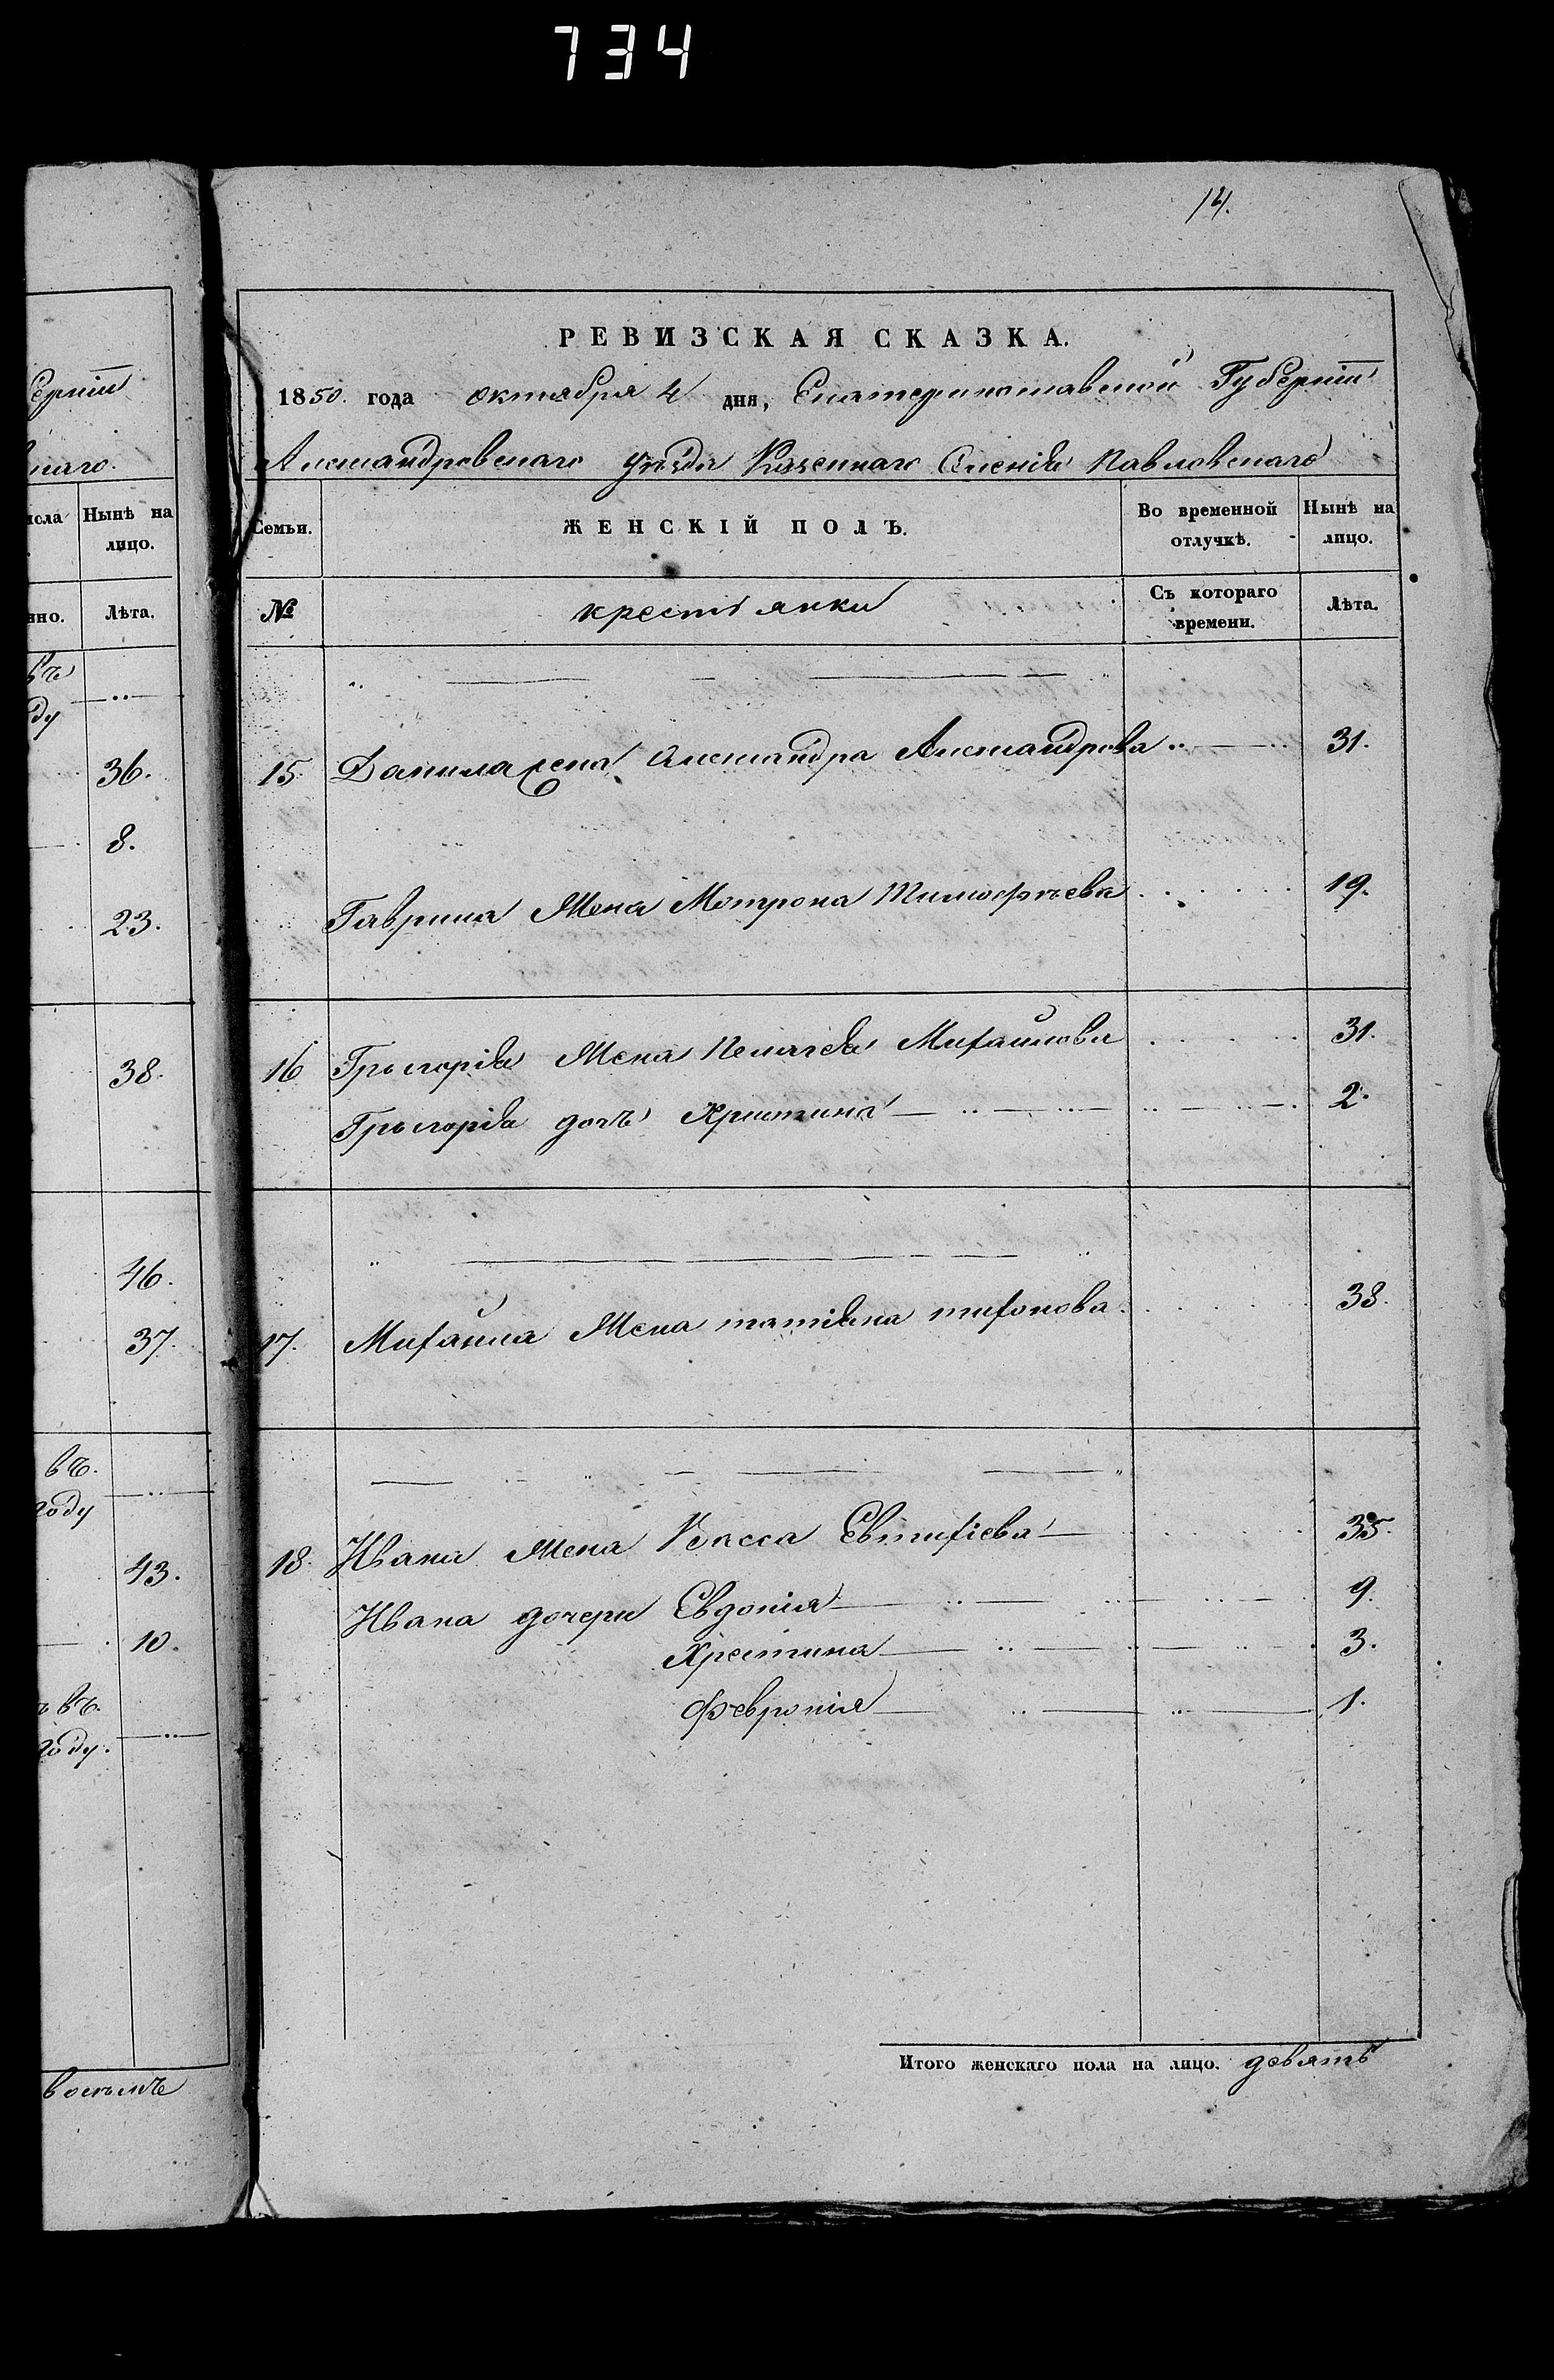 734
14.
РЕВИЗСКАЯ СКАЗКА.
1850. года октября 4 дня, Екатеринославской Губерніи
Александровскаго уѣзда Казеннаго Селенія Павловскаго
Семьи. ЖЕНСКІЙ ПОЛЪ. Во временной отлучкѣ. Нынѣ на лицо.
№ крестьянки Съ котораго времени. Лѣта.
15. Данила жена Александра Александрова 31.
Гаврила Жена Мотрона Тимофѣева 19.
16 Григорія Жена Пелагея Михайлова 31.
Григорія дочь Христина 2.
17. Михаила Жена 38.
18. Ивана Жена Васса Евтифіева 35.
Ивана дочери Евдокія 9.
Християна 3.
Февронія 1.
Итого женскаго пола на лицо. девять
ерніи
наго.
Нынѣ на
лицо.
Лѣта.
въ
ду
36.
8.
23.
38.
46.
37.
въ.
году
43.
10.
въ.
году.
восемь